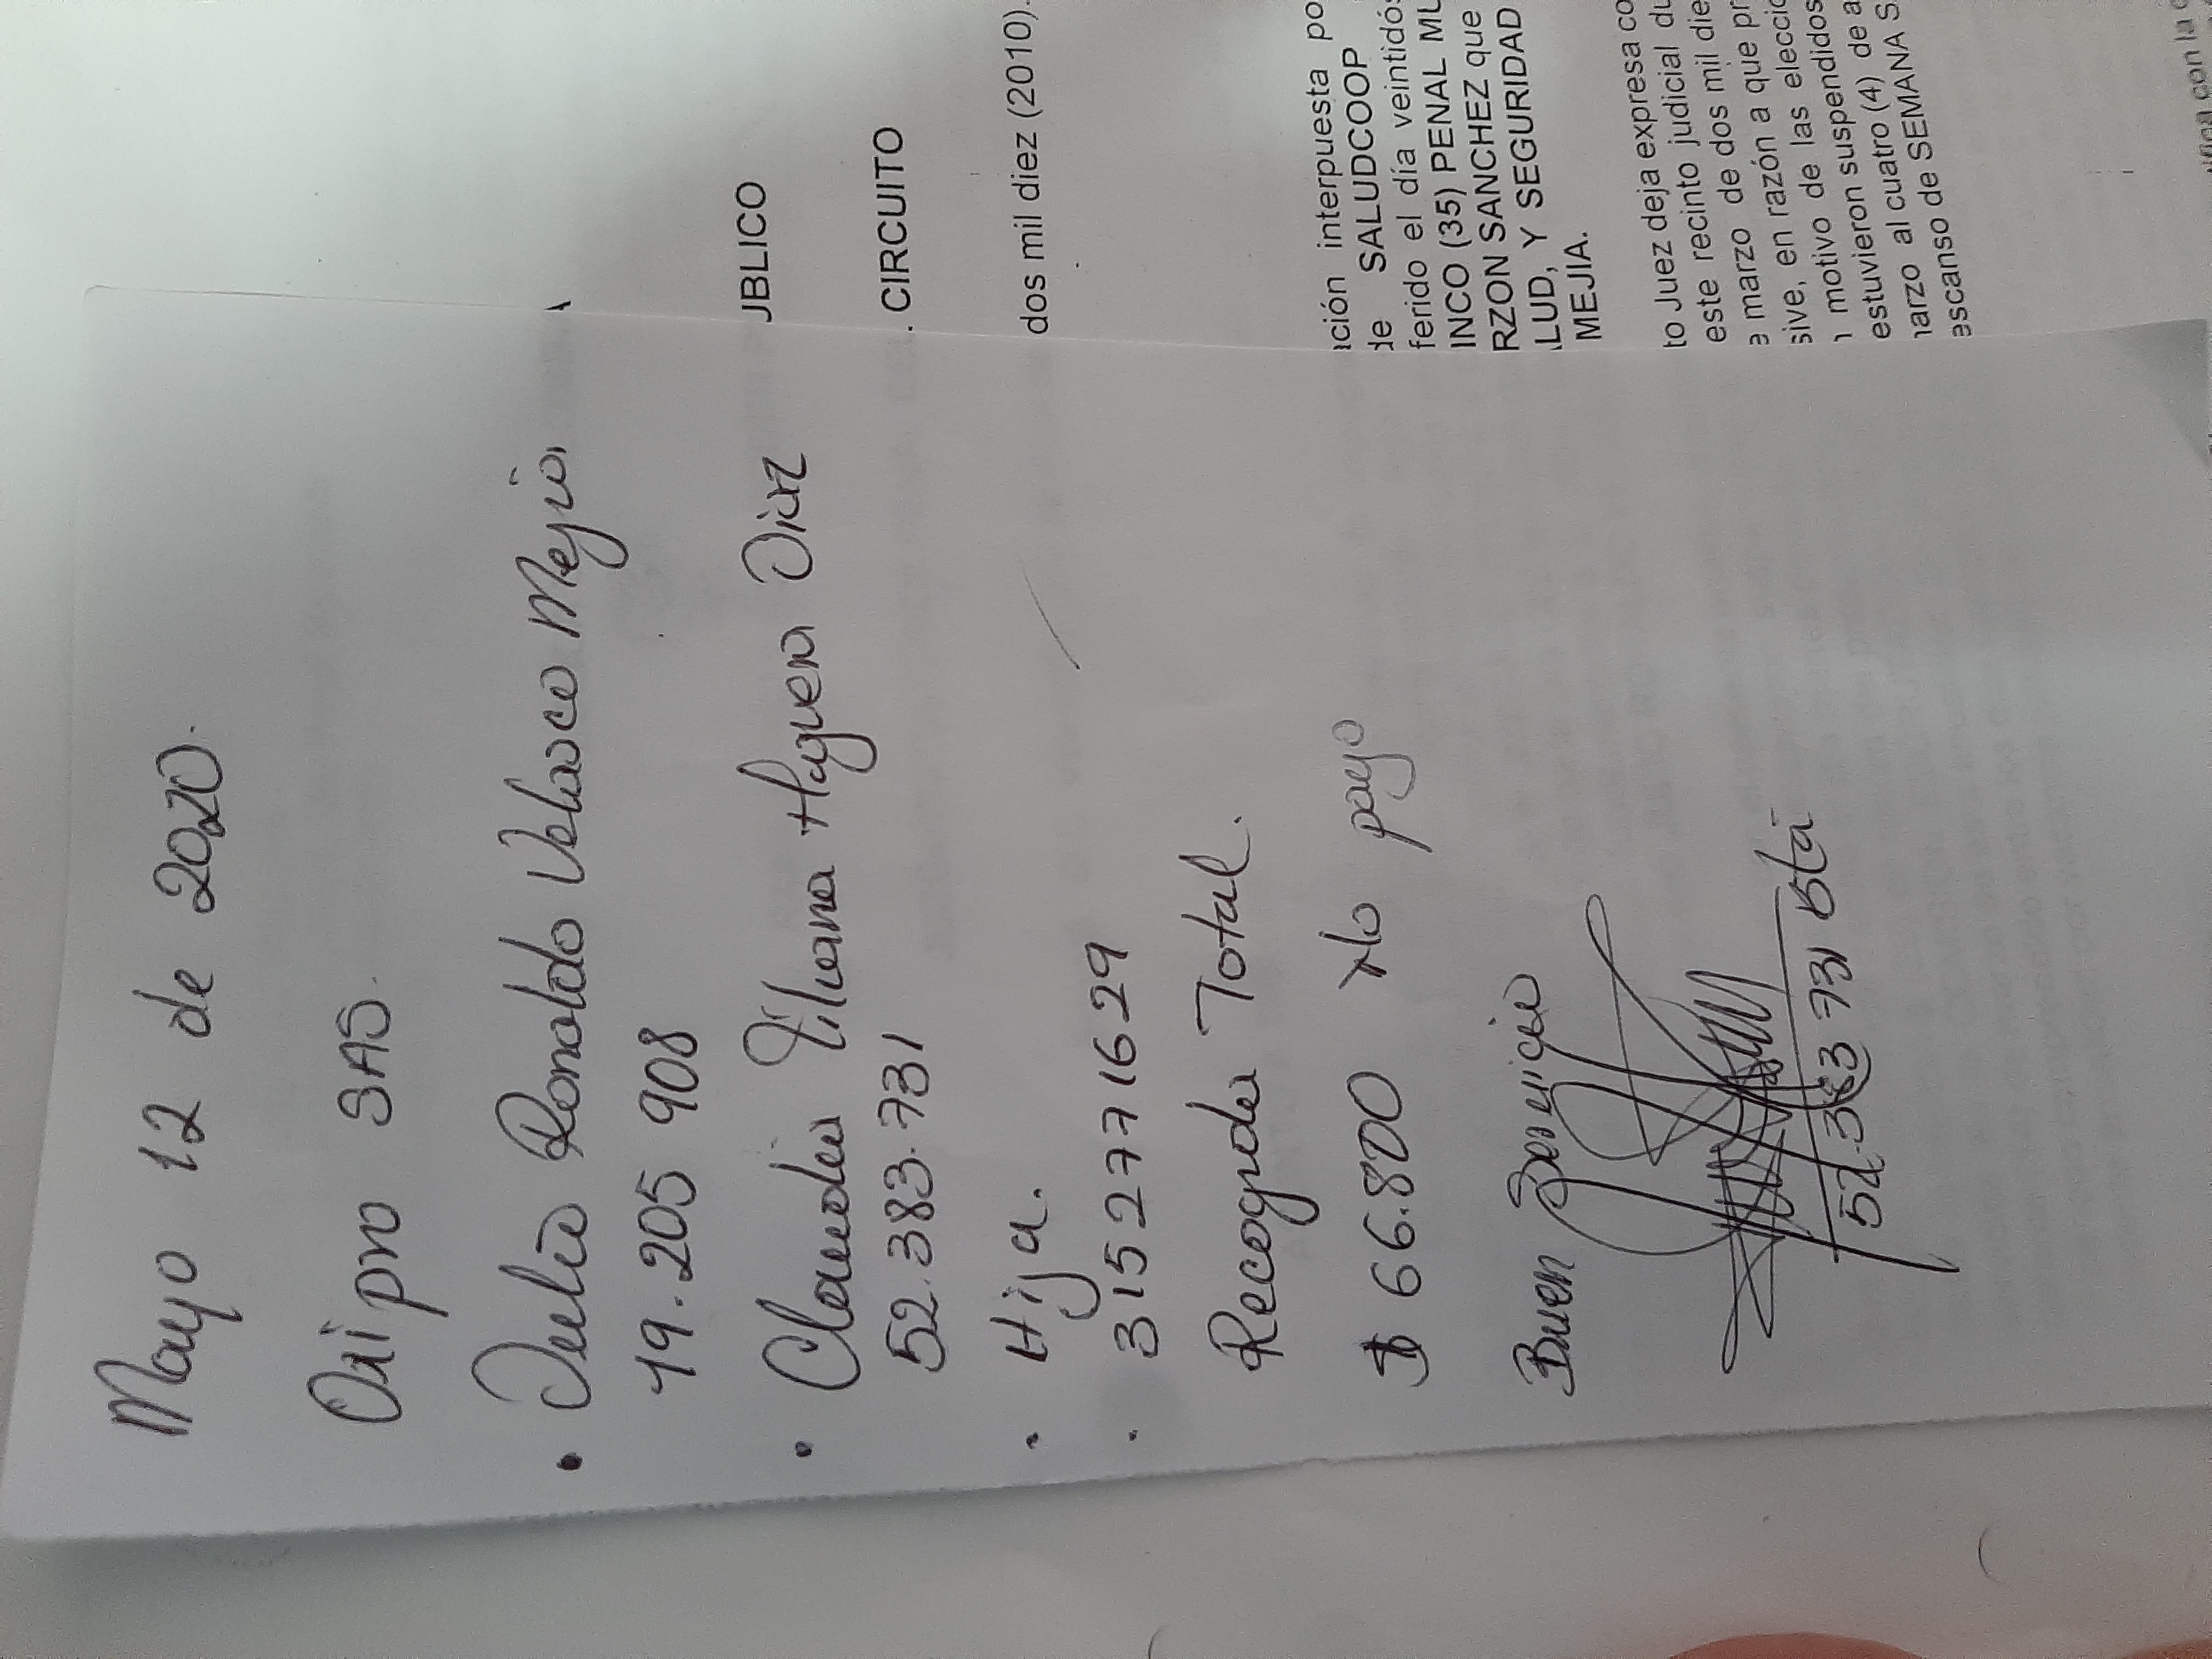 Mayo 12 de 2020.
Oxipro SAS.
• Julio Ronaldo Velasco Mejia
19.205 908
• Claudia Liliana Higuera Diaz
52.383.731
• Hija.
• 315 277 16 29
Recogida Total.
$ 66.800 No pago
Buen Servicio
52.383 731 Bta
JBLICO
. CIRCUITO
dos mil diez (2010).
ción interpuesta po
de SALUDCOOP
ferido el día veintidós
INCO (35) PENAL MU
RZON SANCHEZ que
LUD, Y SEGURIDAD
MEJIA.
to Juez deja expresa co
este recinto judicial du
e marzo de dos mil die
sive, en razón a que pr
motivo de las elecci
estuvieron suspendidos
al cuatro (4) de a
escanso de SEMANA S
con la